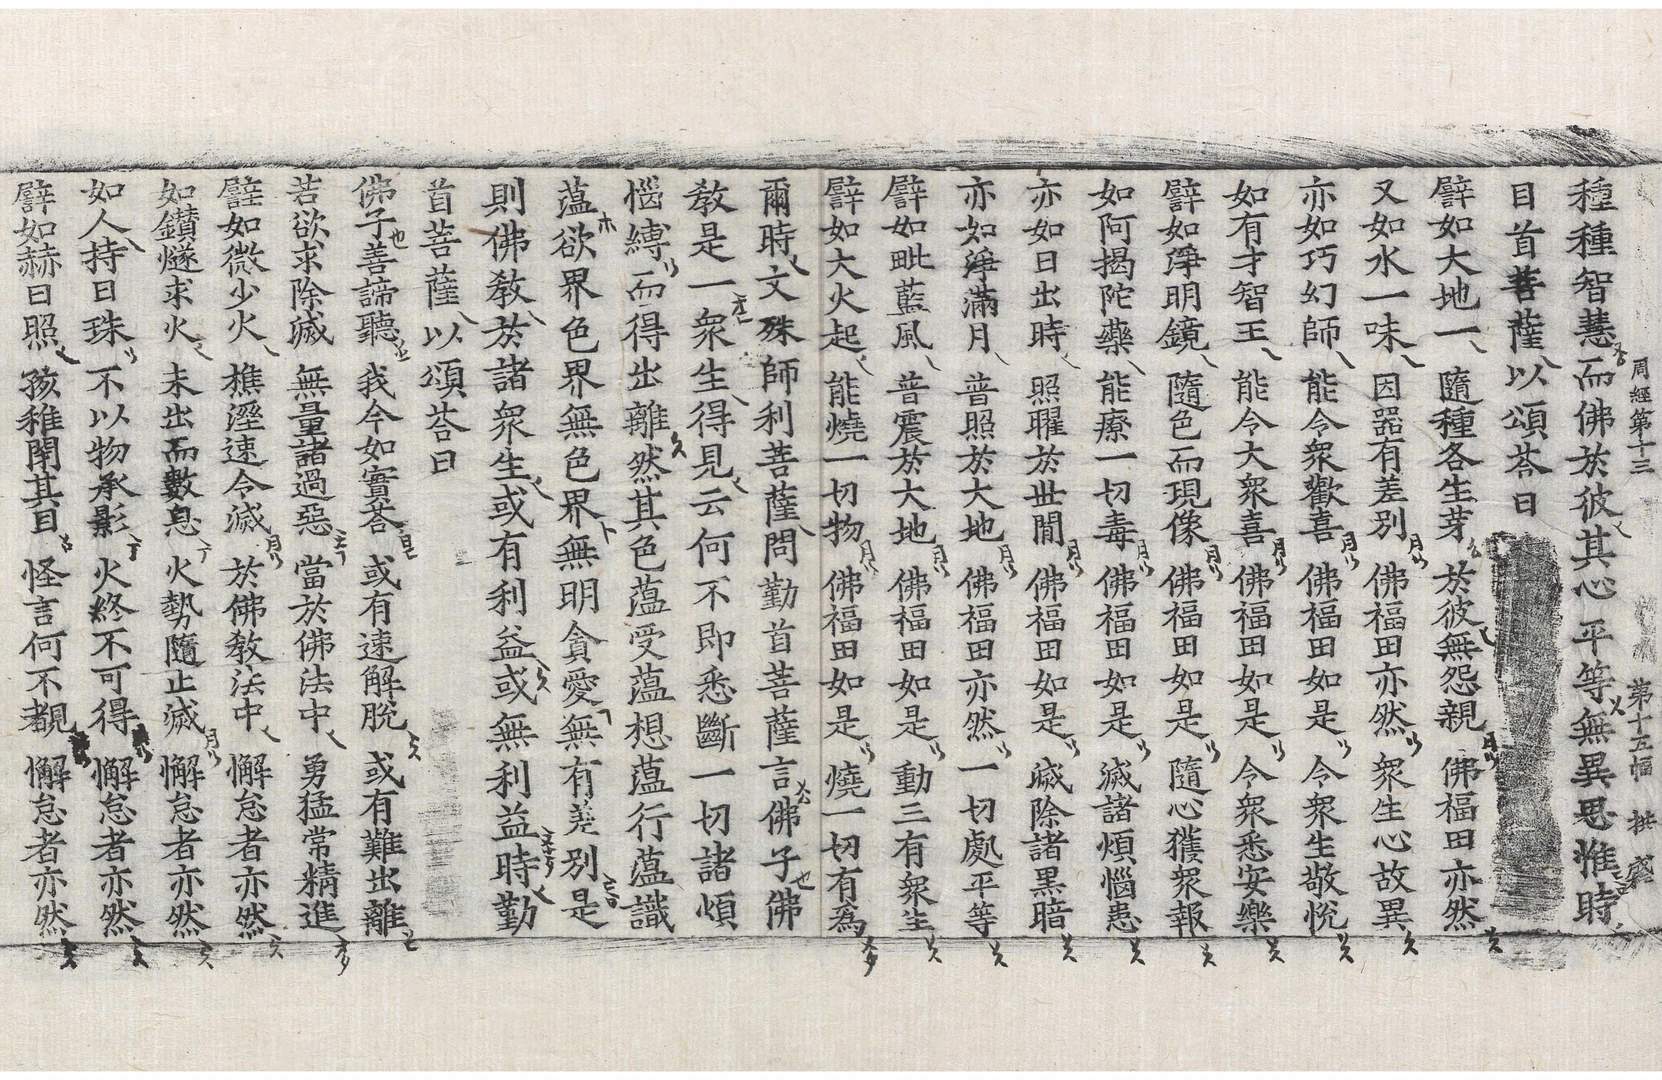 周經第十三 第十五幅 拱 盛
種種智慧而佛於彼其心平等無異思惟時
目首菩薩以頌荅曰
譬如大地一 隨種各生芽 於彼無怨親 佛福田亦然
又如水一味 因器有差別 佛福田亦然 衆生心故異
亦如巧幻師 能令衆歡喜 佛福田如是 令衆生敬悅
如有才智王 能令大衆喜 佛福田如是 令衆悉安樂
譬如淨明鏡 隨色而現像 佛福田如是 隨心獲衆報
如阿揭陀藥 能療一切毒 佛福田如是 滅諸煩惱患
亦如日出時 照曜於世閒 佛福田如是 滅除諸黑暗
亦如淨滿月 普照於大地 佛福田亦然 一切處平等
譬如毗藍風 普震於大地 佛福田如是 動三有衆生
譬如大火起 能燒一切物 佛福田如是 燒一切有爲
爾時文殊師利菩薩問勤首菩薩言佛子佛
教是一衆生得見云何不即悉斷一切諸煩
惱縛而得出離然其色蘊受蘊想蘊行蘊識
蘊欲界色界無色界無明貪愛無有差別是
則佛教於諸衆生或有利益或無利益時勤
首菩薩以頌荅曰
佛子善諦聽 我今如實荅 或有速解脫 或有難出離
若欲求除滅 無量諸過惡 當於佛法中 勇猛常精進
譬如微少火 樵溼速令滅 於佛教法中 懈怠者亦然
如鑽燧求火 未出而數息 火勢隨止滅 懈怠者亦然
如人持日珠 不以物承影 火終不可得 懈怠者亦然
譬如赫日照 孩稚閇其目 怪言何不覩 懈怠者亦然